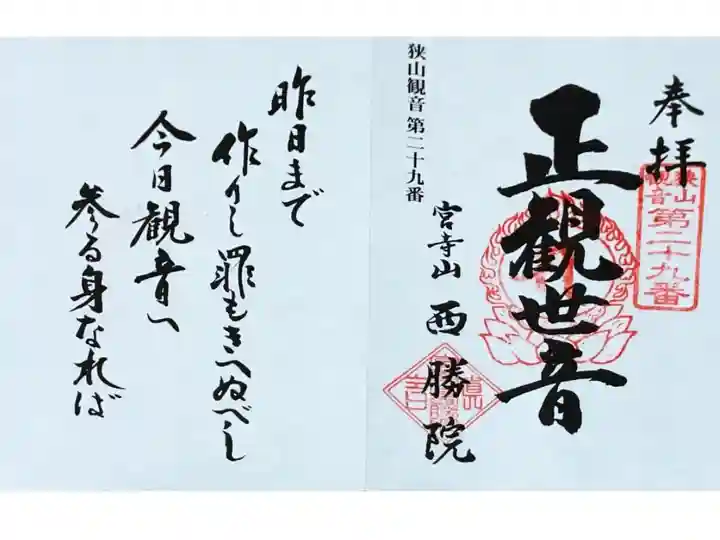 奉拝
狭山
観音
第二十九番
正観世音
狭山観音 第二十九番
宮寺山 西勝院
昨日まで
作りし罪もきへぬべし
今日観音へ
参る身なれば